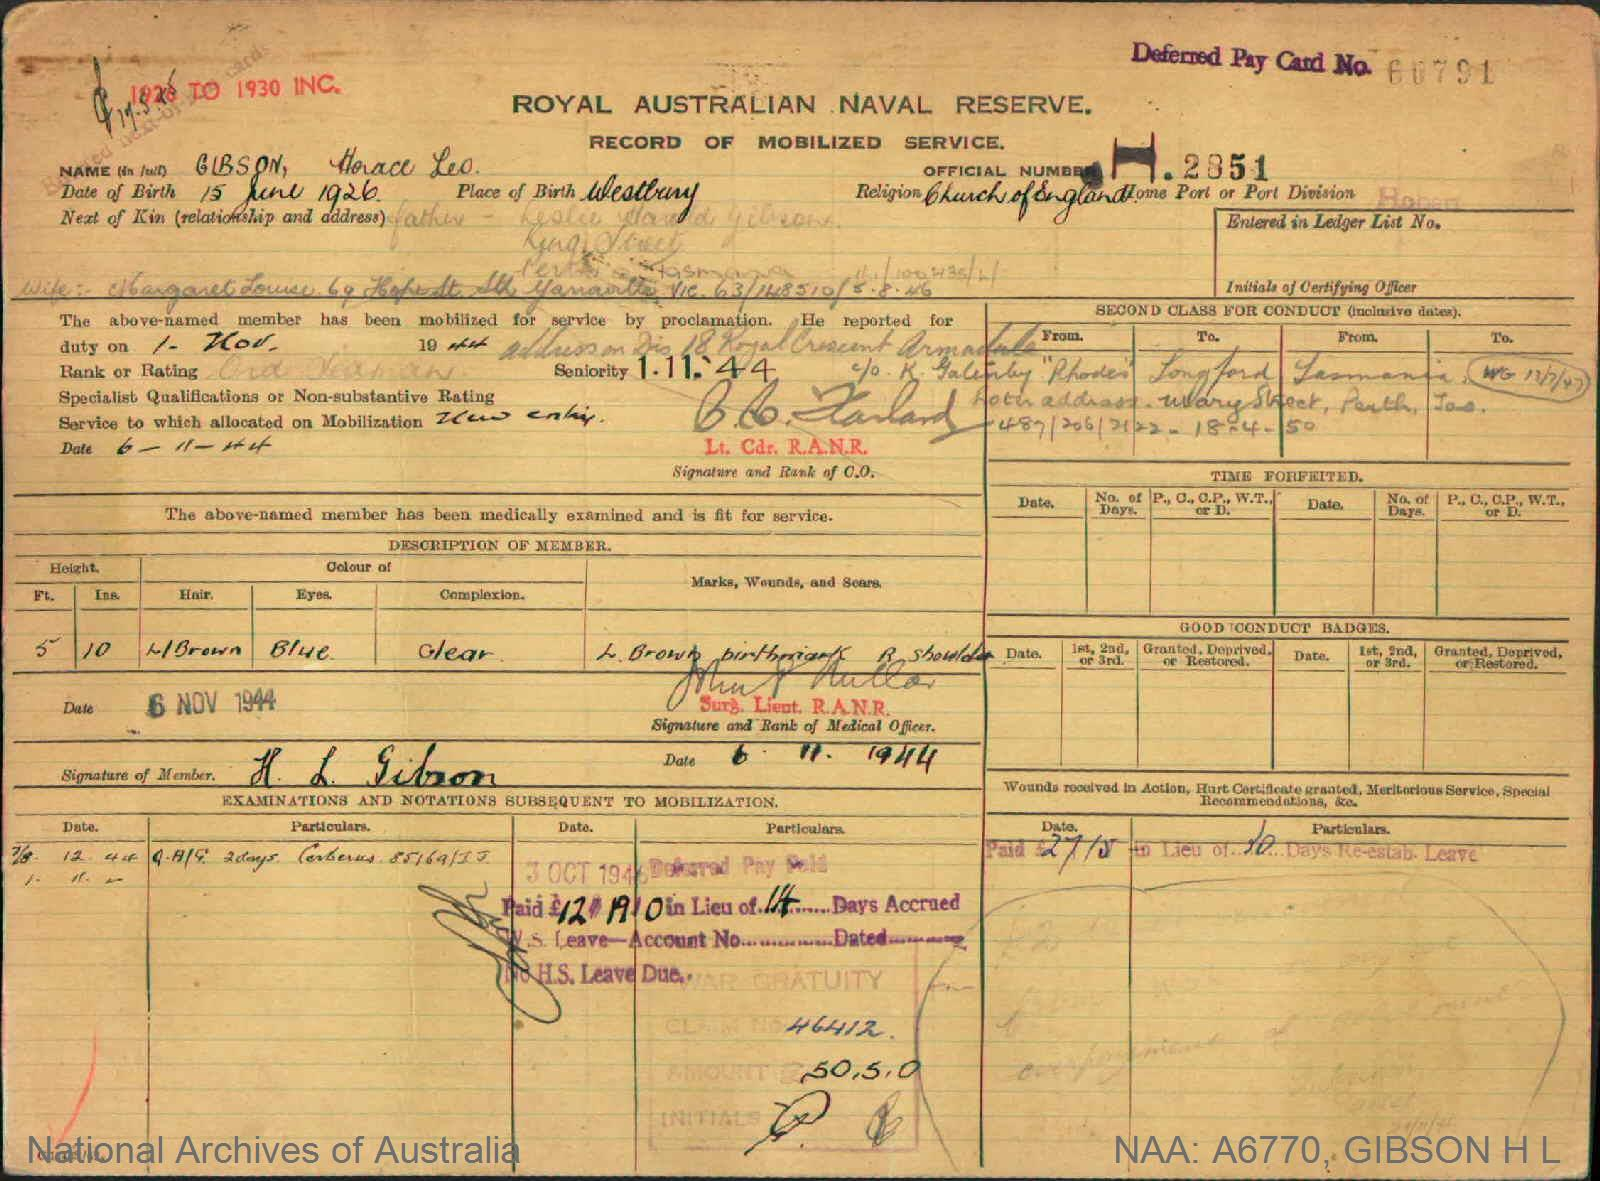 Deferred Pay Card No. 60791
1926 TO 1930 INC.
ROYAL AUSTRALIAN NAVAL RESERVE.
RECORD OF MOBILIZED SERVICE.
NAME (in full) GIBSON, Horace Leo. OFFICIAL NUMBER H.2851
Date of Birth 15 June 1926. Place of Birth Westbury Religion Church of England Home Port or Port Division Hobart
Next of Kin (relationship and address) father - Leslie Harold Gibson. Entered in Ledger List No.
King Street
Perth Tasmania
Wife:- Margaret Louise. 69 Hope St. Sth Yarraville Vic. 63/148510/5.8.46 Initials of Certifying Officer
The above-named member has been mobilized for service by proclamation. He reported for
duty on 1- Nov. 1944 address on Dis 18 Royal Crescent Armadale
Rank or Rating Ord Seaman Seniority 1.11.44
Specialist Qualifications or Non-substantive Rating
Service to which allocated on Mobilization New entry.
Date 6-11-44
Lt. Cdr. R.A.N.R.
Signature and Rank of C.O.
SECOND CLASS FOR CONDUCT (inclusive dates).
From. To. From. To.
c/o. K. Galenby "Rhodes" Longford Tasmania. WG 13/7/47
address. Mary Street, Perth, Tas.
487/206/2122 - 18-4-50
TIME FORFEITED.
Date. No. of Days. P., C., C.P., W.T., or D. Date. No. of Days. P., C., C.P., W.T., or D.
The above-named member has been medically examined and is fit for service.
DESCRIPTION OF MEMBER.
Height. Colour of Marks, Wounds, and Scars.
Ft. Ins. Hair. Eyes. Complexion.
5 10 L/Brown Blue Clear L. Brown birthmark R shoulder
GOOD CONDUCT BADGES.
Date. 1st, 2nd, or 3rd. Granted, Deprived, or Restored. Date. 1st, 2nd, or 3rd. Granted, Deprived, or Restored.
Date 6 NOV 1944
Surg. Lieut. R.A.N.R.
Signature and Rank of Medical Officer.
Signature of Member. H. L. Gibson Date 6. 11. 1944
EXAMINATIONS AND NOTATIONS SUBSEQUENT TO MOBILIZATION.
Date. Particulars. Date. Particulars.
7/8. 12. 44 2 days. Cerberus. 85169/
3 OCT 1946 Deferred Pay Paid
Paid £12 19 0 in Lieu of 14 Days Accrued
W.S. Leave—Account No. Dated
No H.S. Leave Due.
WAR GRATUITY
CLAIM No 46412.
AMOUNT £ 50.5.0
INITIALS
Wounds received in Action, Hurt Certificate granted, Meritorious Service, Special Recommendations, &c.
Date. Particulars.
Paid £27/5 in Lieu of 30 Days Re-estab. Leave
National Archives of Australia
NAA: A6770, GIBSON H L